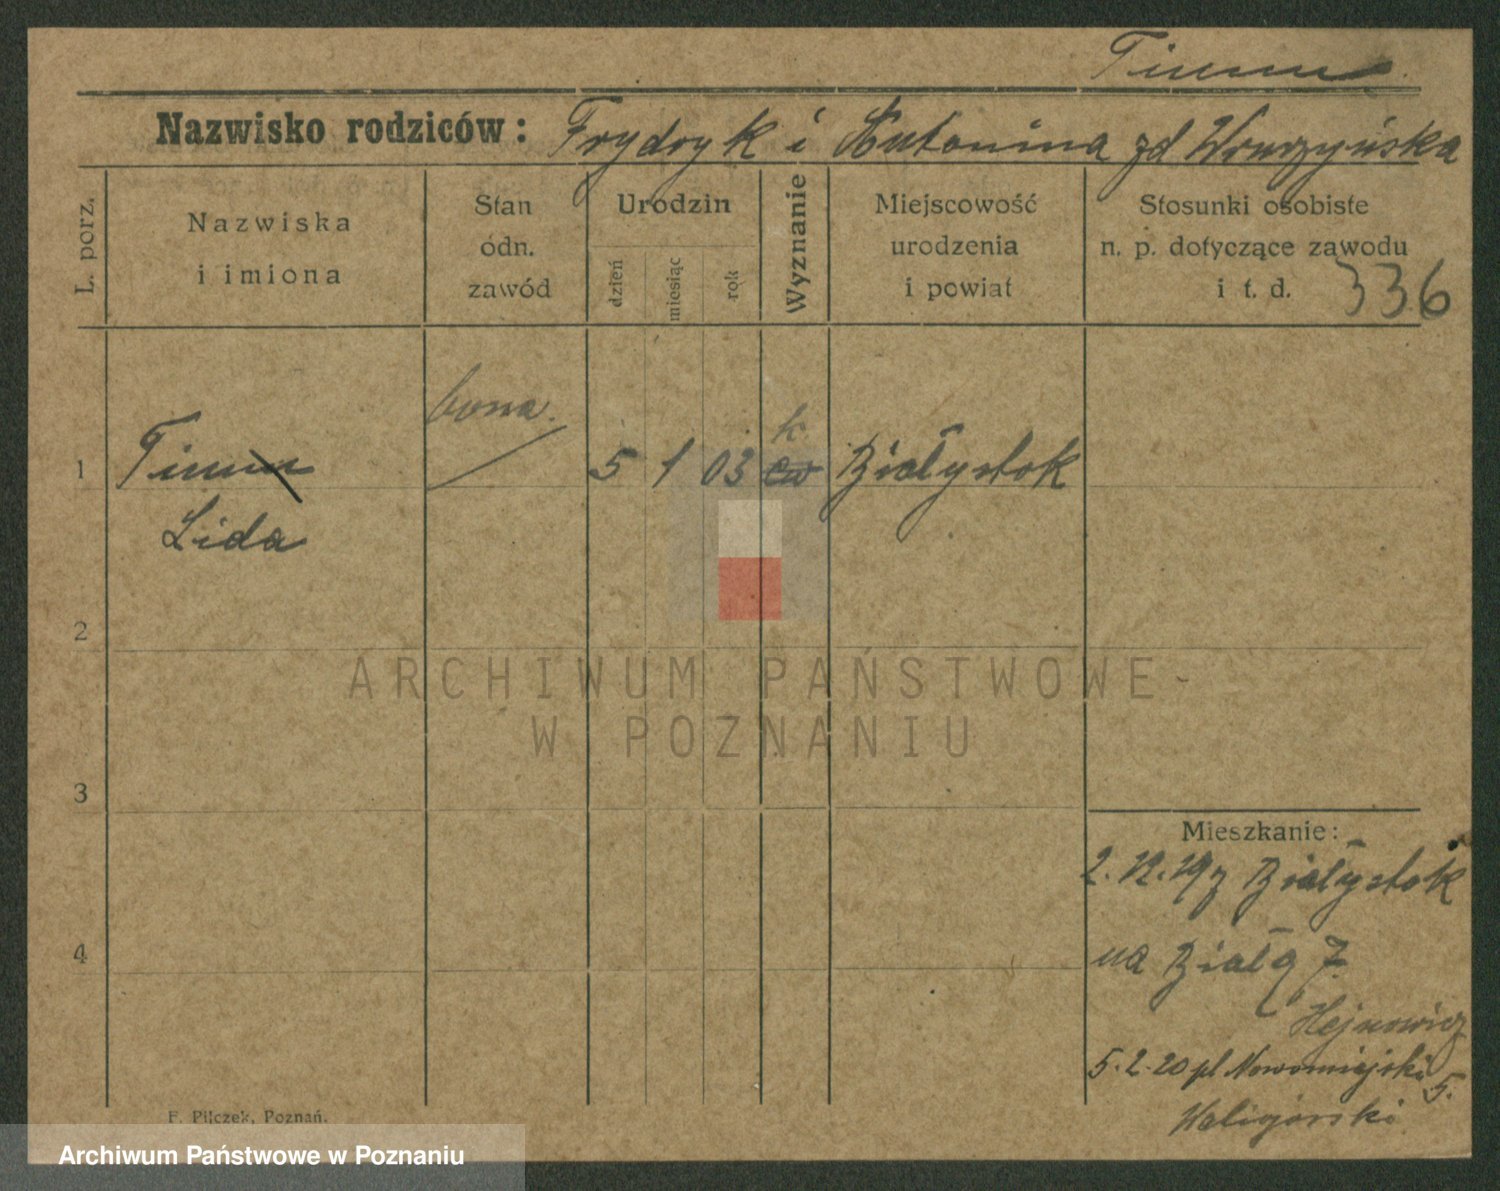 Timm
Nazwisko rodziców: Frydryk i Antonina zd Wruszyńska
L. porz.
Nazwiska
i imiona
Stan
odn.
zawód
Urodzin
dzień
miesiąc
rok
Wyznanie
Miejscowość
urodzenia
i powiat
Stosunki osobiste
n. p. dotyczące zawodu
i t. d.
336
bona.
k
1 Timm 5 1 03 ew Białystok
Lida
2
3
4
Mieszkanie:
2. 12. 19 z Białystok
na Białą 7.
Hejnowicz
5. 2. 20 pl Nowomiejski 5.
Waligórski
F. Pilczek, Poznań.
ARCHIWUM PAŃSTWOWE
W POZNANIU
Archiwum Państwowe w Poznaniu